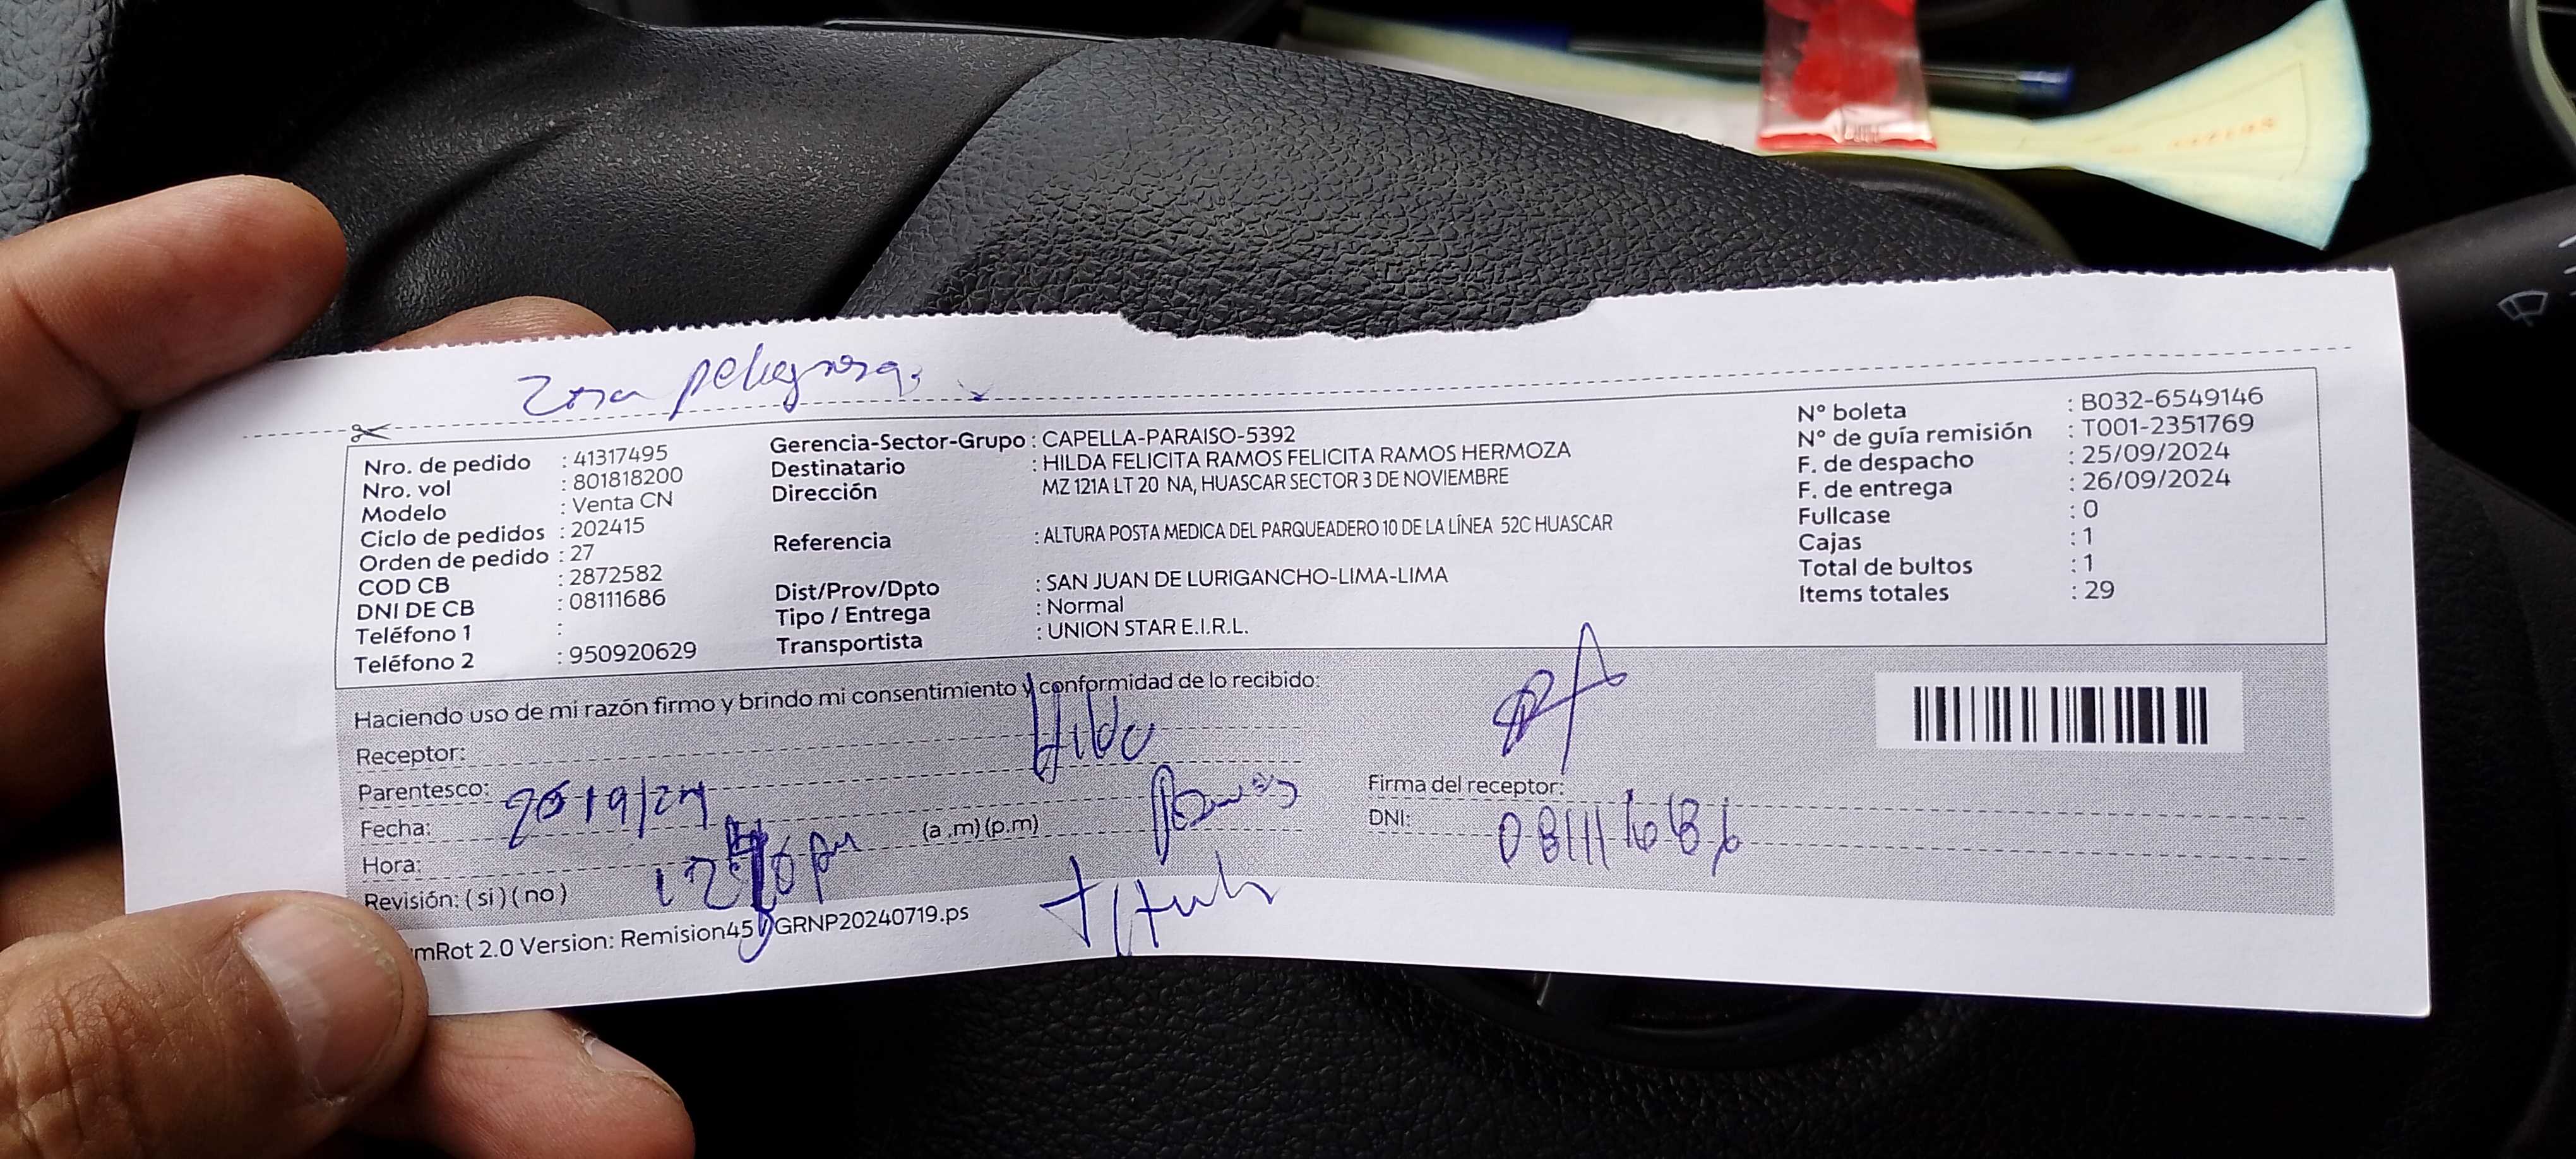 Zona peligrosa.
Nro. de pedido : 41317495
Nro. vol : 801818200
Modelo : Venta CN
Ciclo de pedidos : 202415
Orden de pedido : 27
COD CB : 2872582
DNI DE CB : 08111686
Teléfono 1 :
Teléfono 2 : 950920629
Gerencia-Sector-Grupo : CAPELLA-PARAISO-5392
Destinatario : HILDA FELICITA RAMOS FELICITA RAMOS HERMOZA
Dirección MZ 121A LT 20 NA, HUASCAR SECTOR 3 DE NOVIEMBRE
Referencia : ALTURA POSTA MEDICA DEL PARQUEADERO 10 DE LA LÍNEA 52C HUASCAR
Dist/Prov/Dpto : SAN JUAN DE LURIGANCHO-LIMA-LIMA
Tipo / Entrega : Normal
Transportista : UNION STAR E.I.R.L.
N° boleta : B032-6549146
N° de guía remisión : T001-2351769
F. de despacho : 25/09/2024
F. de entrega : 26/09/2024
Fullcase : 0
Cajas : 1
Total de bultos : 1
Items totales : 29
Haciendo uso de mi razón firmo y brindo mi consentimiento y conformidad de lo recibido:
Receptor: Hilda
Parentesco: Ramos
Fecha:
Hora: (a .m) (p.m)
Revisión: ( si ) ( no )
Titular
Firma del receptor:
DNI: 08111686
mRot 2.0 Version: Remision45 GRNP20240719.ps